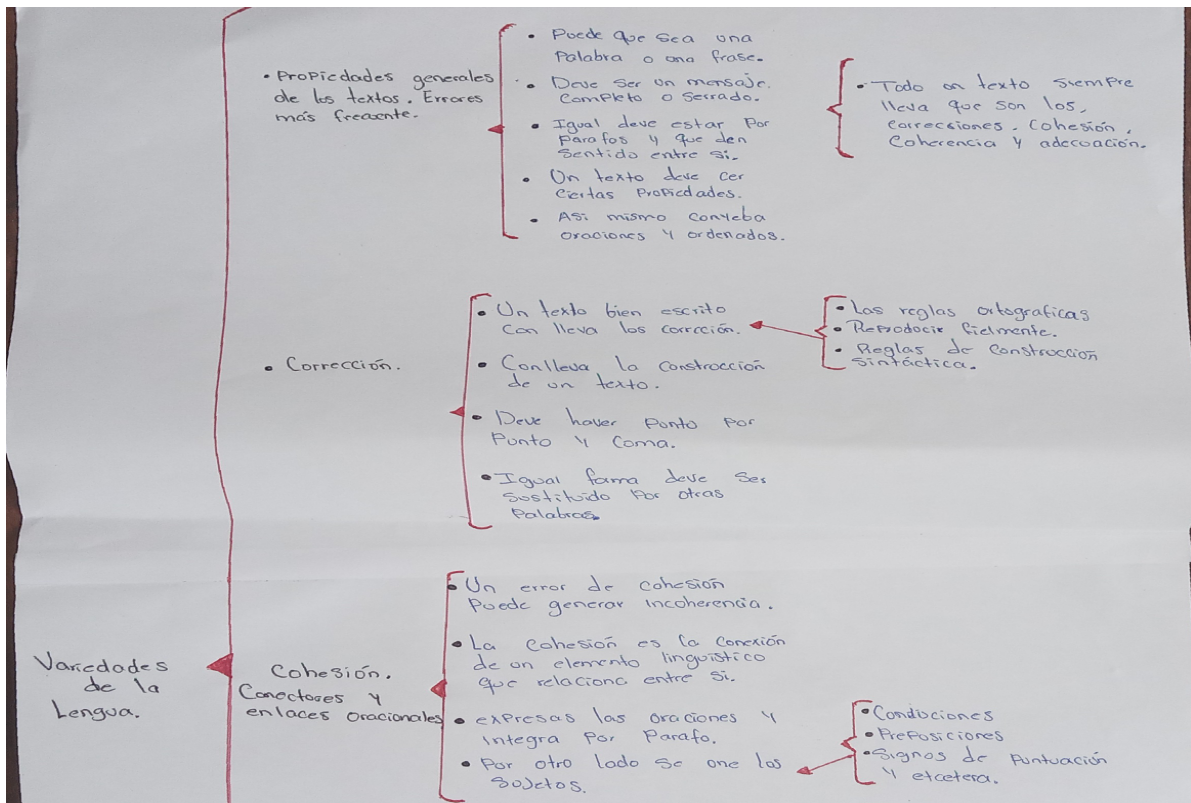 • Propiedades generales
de los textos. Errores
más frecuente.
• Puede que sea una
Palabra o una frase.
• Deve ser un mensaje.
Completo o serrado.
• Igual deve estar por
Parafos y que den
Sentido entre si.
• Un texto deve cer
Ciertas Propiedades.
• Asi mismo conveba
oraciones y ordenados.
• Todo on texto siempre
lleva que son los.
correcsiones. Cohesión.
Coherencia y adecuación.
• Corrección.
• Un texto bien escrito
Con lleva los corrción.
• Conlleva la construcción
de un texto.
• Deve haver Punto Por
Punto y Coma.
• Igual forma deve ser
Sustituido Por otras
Palabras.
• Las reglas ortograficas
• Reprodocir fielmente.
• Reglas de construccion
Sintáctica.
Variedades
de la
Lengua.
Cohesión.
Conectores y
enlaces oracionales
• Un error de cohesión
Puede generar incoherencia.
• La cohesión es la conexión
de un elemento linguistico
que relaciona entre si.
• expresas las oraciones y
integra Por Parafo.
• Por otro lado se one los
Sujetos.
• Condiciones
• Preposiciones
• Signos de Puntuación
y etcetera.